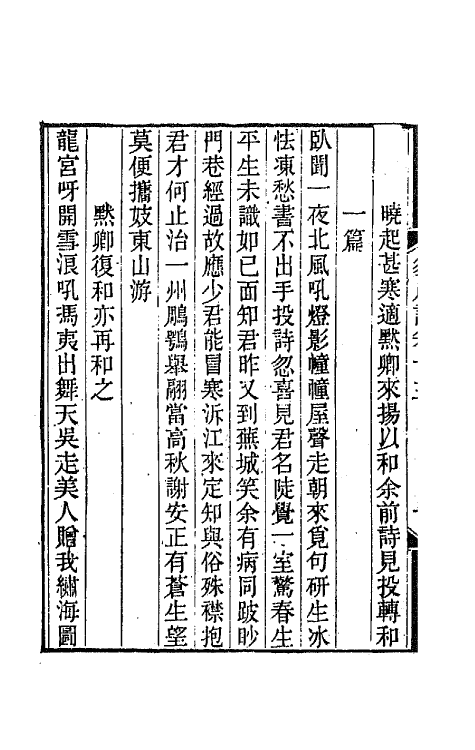 曉起甚寒適黙卿來揚以和余前詩見投轉和
一篇
臥聞一夜北風吼燈影幢幢屋聲走朝來覓句研生冰
怯凍愁書不出手投詩忽喜見君名陡覺一室驚春生
平生未識如已面知君昨又到蕪城笑余有病同跛眇
門巷經過故應少君能冒寒泝江來定知與俗殊襟抱
君才何止治一州鵰鶚舉翮當高秋謝安正有蒼生望
莫便攜妓東山游
黙卿復和亦再和之
龍宮呀開雪浪吼馮夷出舞天吳走美人贈我繡海圖